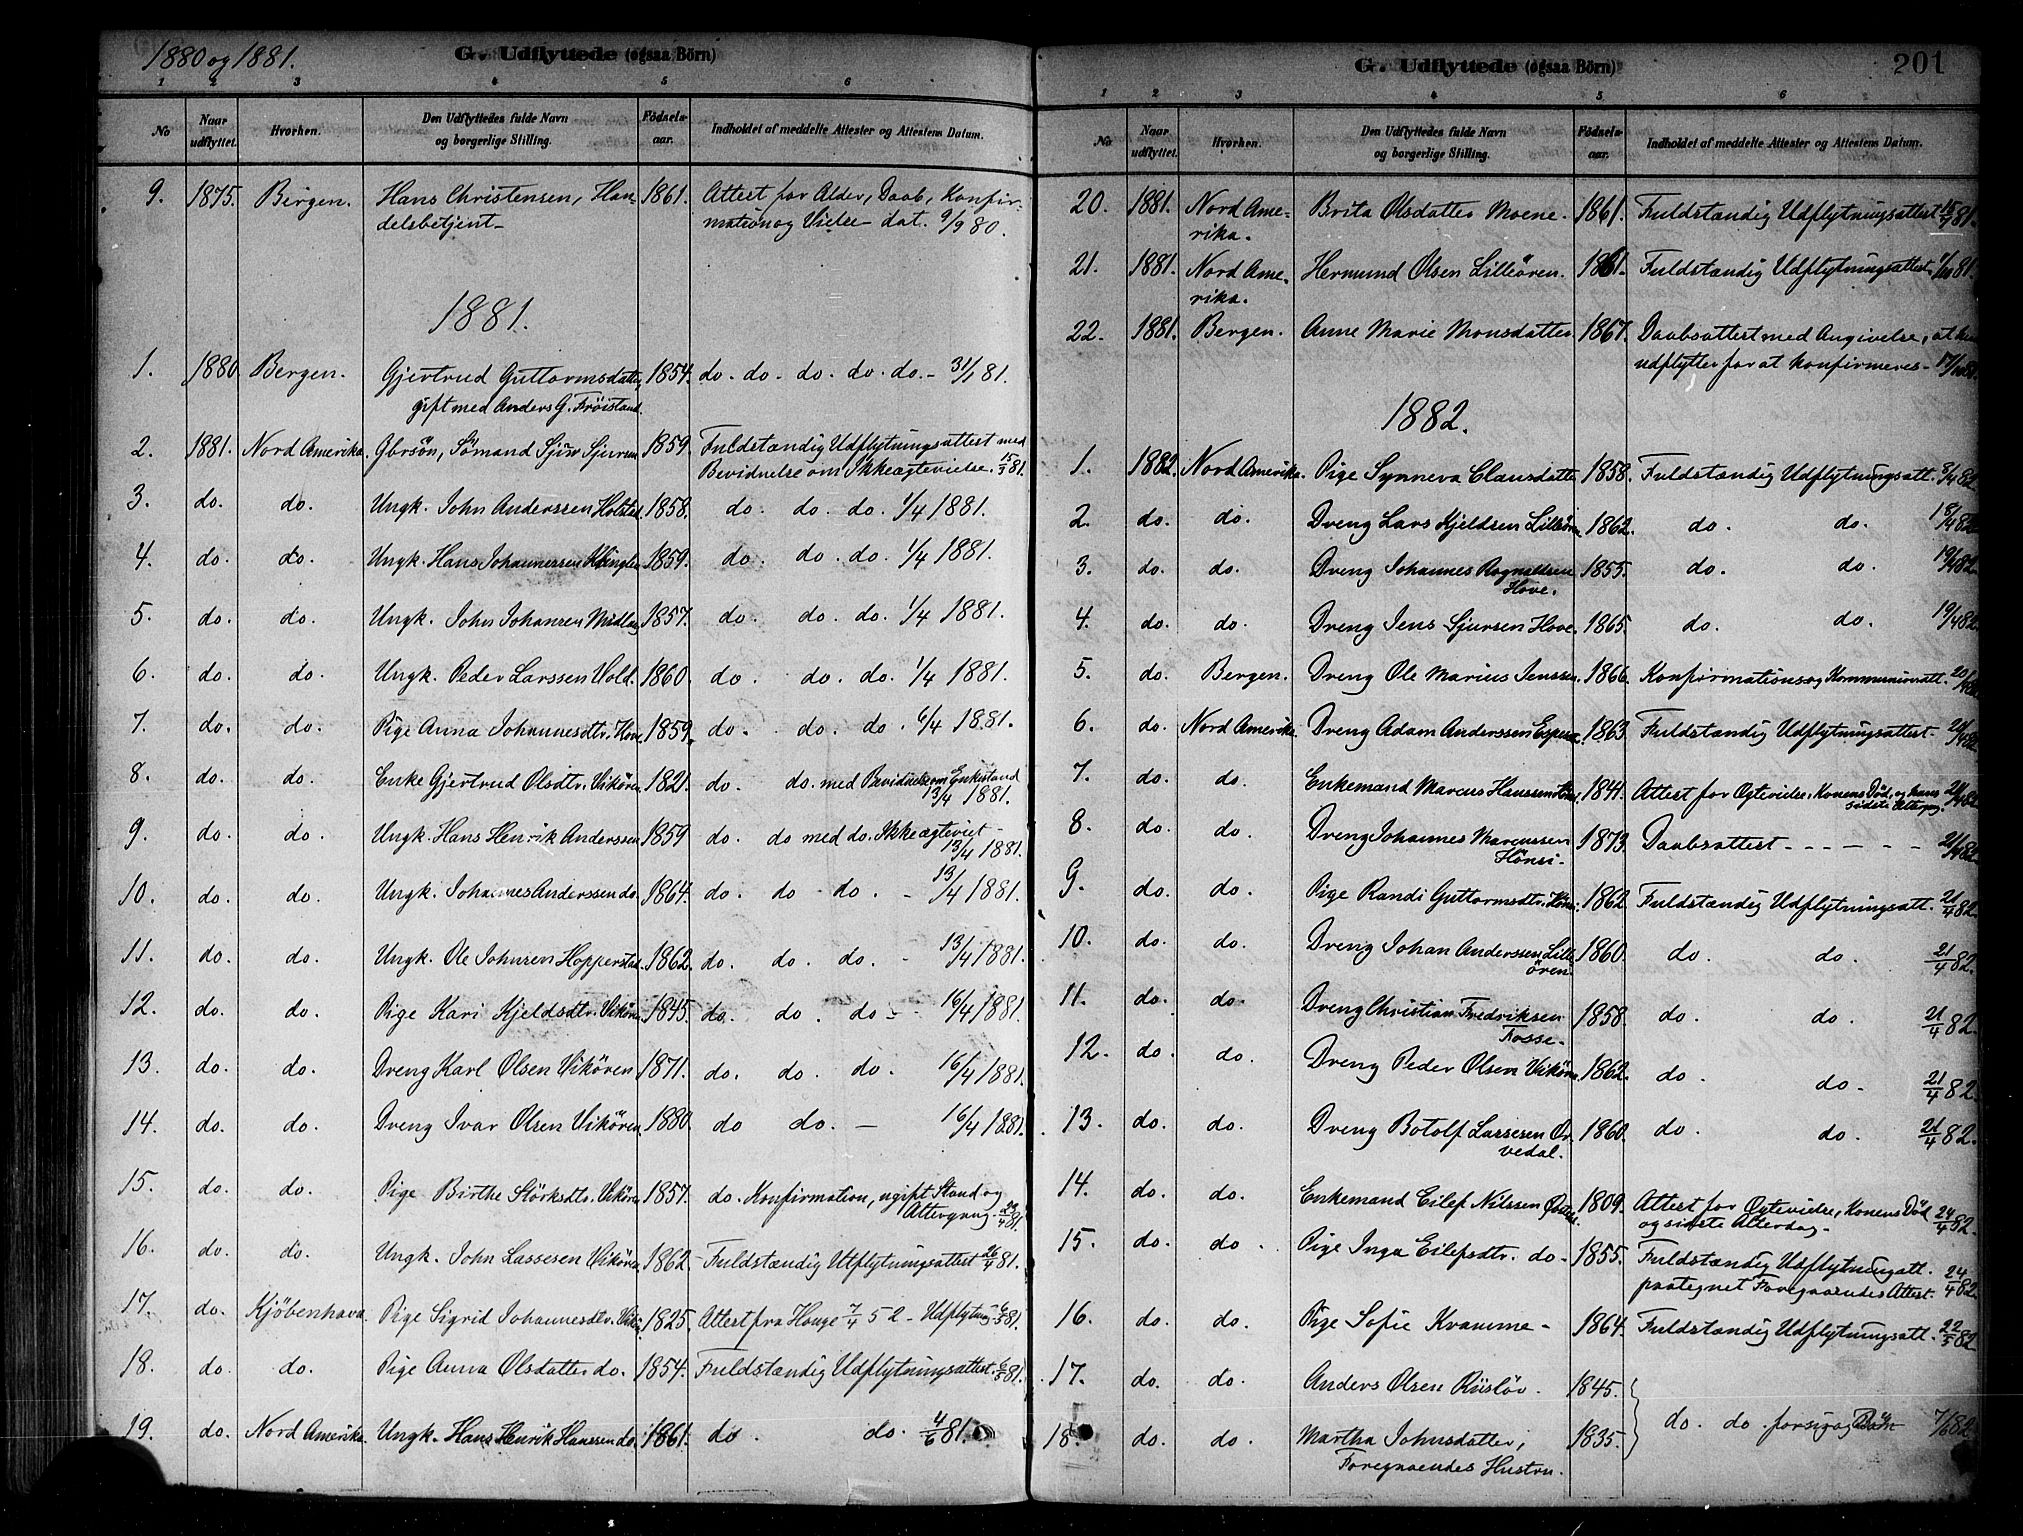 1880 og 1881.
G. Udflyttede (ogsaa Börn)
1 2 3 4 5 6
No
Naar udflyttet.
Hvorhen.
Den Udflyttedes fulde Navn og borgerlige Stilling.
Födsels-aar.
Indholdet af meddelte Attester og Attestens Datum.
9. 1875. Bergen. Hans Christensen, Han- 1861. Attest for Alder, Daab, Konfir-
delsbetjent - mation og Vielse - dat. 9/9 80.
1881.
1. 1880. Bergen. Gjertrud Guttormsdatter, 1854. do. do. do. do. do. - 31/1 81.
gift med Anders G. Fröistand.
2. 1881. Nord Amerika. Sömand Sjur Sjursen 1859. Fuldstændig Udflytningsattest med
Bevidnelse om Ikkeægtevielse. 15/3 81.
3. do. do. Ungk. John Anderssen Holstad 1858. do. do. do. 1/4 1881.
4. do. do. Ungk. Hans Johannessen 1859. do. do. do. 1/4 1881.
5. do. do. Ungk. John Johansen 1857. do. do. do. 1/4 1881.
6. do. do. Ungk. Peder Larssen Vold. 1860. do. do. do. 1/4 1881.
7. do. do. Pige Anna Johannesdtr. Hove. 1859. do. do. do. 6/4 1881.
8. do. do. Enke Gjertrud Olsdtr. Vikören. 1821. do. do. med Bevidnelse om Enkestand
13/4 1881.
9. do. do. Ungk. Hans Henrik Anderssen 1859 do. do med do. Ikkeægteviet -
13/4 1881.
10. do. do. Ungk. Johannes Anderssen do. 1864. do. do - do. - 13/4 1881.
11. do. do. Ungk. Ole Johnsen Hopperstad. 1862. do. do. do. - 13/4 1881.
12. do. do. Pige Kari Kjeldsdtr. Vikören 1845. do. do. do - - 16/4 1881.
13. do. do. Dreng Karl Olsen Vikören 1871. do. do. do. 16/4 1881.
14. do. do. Dreng Ivar Olsen Vikören. 1880. do do. - 16/4 1881.
15. do. do. Pige Birthe Störksdtr. Vikören 1857. do. Konfirmation, ugift Stand og
Altergang - 23/4 81.
16. do. do. Ungk. John Lassesen Vikören 1862. Fuldstændig Utflytningsattest 26/4 81.
17. do. Kjöbenhavn. Pige Sigrid Johannesdtr. Vikör. 1825. Attest fra Hauge 7/4 52 - Udflytning 6/5 81.
18. do. do. Pige Anna Olsdatter do. 1854. Fuldstændig Udflytningsattest. 6/5 81.
19. do. Nord Amerika. Ungk. Hans Henrik Hanssen do. 1861. do. do. 4/6 81.
G. Udflyttede (ogsaa Börn)
201
1 2 3 4 5 6
No
Naar udflyttet.
Hvorhen.
Den Udflyttedes fulde Navn og borgerlige Stilling.
Födsels-aar.
Indholdet af meddelte Attester og Attestens Datum.
20. 1881. Nord Ame- Brita Olsdatter Moene. 1861. Fuldstændig Udflytningsattest 81.
rika.
21. 1881. Nord Ame- Hermund Olsen Lilleören. 1861. Fuldstændig Udflytningsattest. 81.
rika.
22. 1881. Bergen. Anne Marie Monsdatter 1867. Daabsattest med Angivelse, at hun
udflytter for at konfirmeres -
1882.
1. 1882. Nord Amerika. Pige Synneva Clausdatter 1858. Fuldstændig Udflytningsatt. 8/4 82
2. do. do. Dreng Lars Kjeldsen Lilleören 1862. do. do. 18/4 82
3. do. do. Dreng Johannes Rognaldsen 1855. do. do. 19/4 82
Hove.
4. do. do. Dreng Jens Sjursen Hove. 1865. do. do. 19/4 82
5. do. Bergen. Dreng Ole Marius Jenssen. 1866. Konfirmations og Kommunionatt. 20/4 82
6. do. Nord Amerika. Dreng Adam Anderssen 1863. Fuldstændig Udflytningsattest. 20/4 82
7. do. do. Enkemand Marcus Hanssen 1841. Attest for Ægtevielse, Konens Död, og hans 21/4 82
sidste Alterg.
8. do. do. Dreng Johannes Marcussen 1873. Daabsattest - - - - - 21/4 82
Hönsi.
9. do. do. Pige Randi Guttormsdtr. Hönsi. 1862. Fuldstændig Udflytningsatt. 21/4 82.
10. do. do. Dreng Johan Anderssen Lille 1860. do. do. 21/4 82.
ören.
11. do. do. Dreng Christian Fredriksen 1858. do. do. 21/4 82.
Fosse.
12. do. do. Dreng Peder Olsen Vikören 1862. do. do. 21/4 82.
13. do. do. Dreng Botolf Lassesen Ör 1860. do. do. 21/4 82.
vedal.
14. do. do. Enkemand Eilef Nilssen 1809. Attest for Ægtevielse, Konens Död
og sidste Alterdag - 24/4 82.
15. do. do. Pige Inga Eilefsdtr. do - 1855. Fuldstændig Udflytningatt.
paategnet Foregaaendes Attest. 24/4 82.
16. do. do. Pige Sofie Kvamme - 1864. Fuldstændig Udflytningsatt. 22/5 82
17. do. do. Anders Olsen Riislöv. 1845.
do. do. for sig og Börn 7/6 82.
18. do. do. Martha Johnsdatter, 1835.
Foregaaendes Hustru.